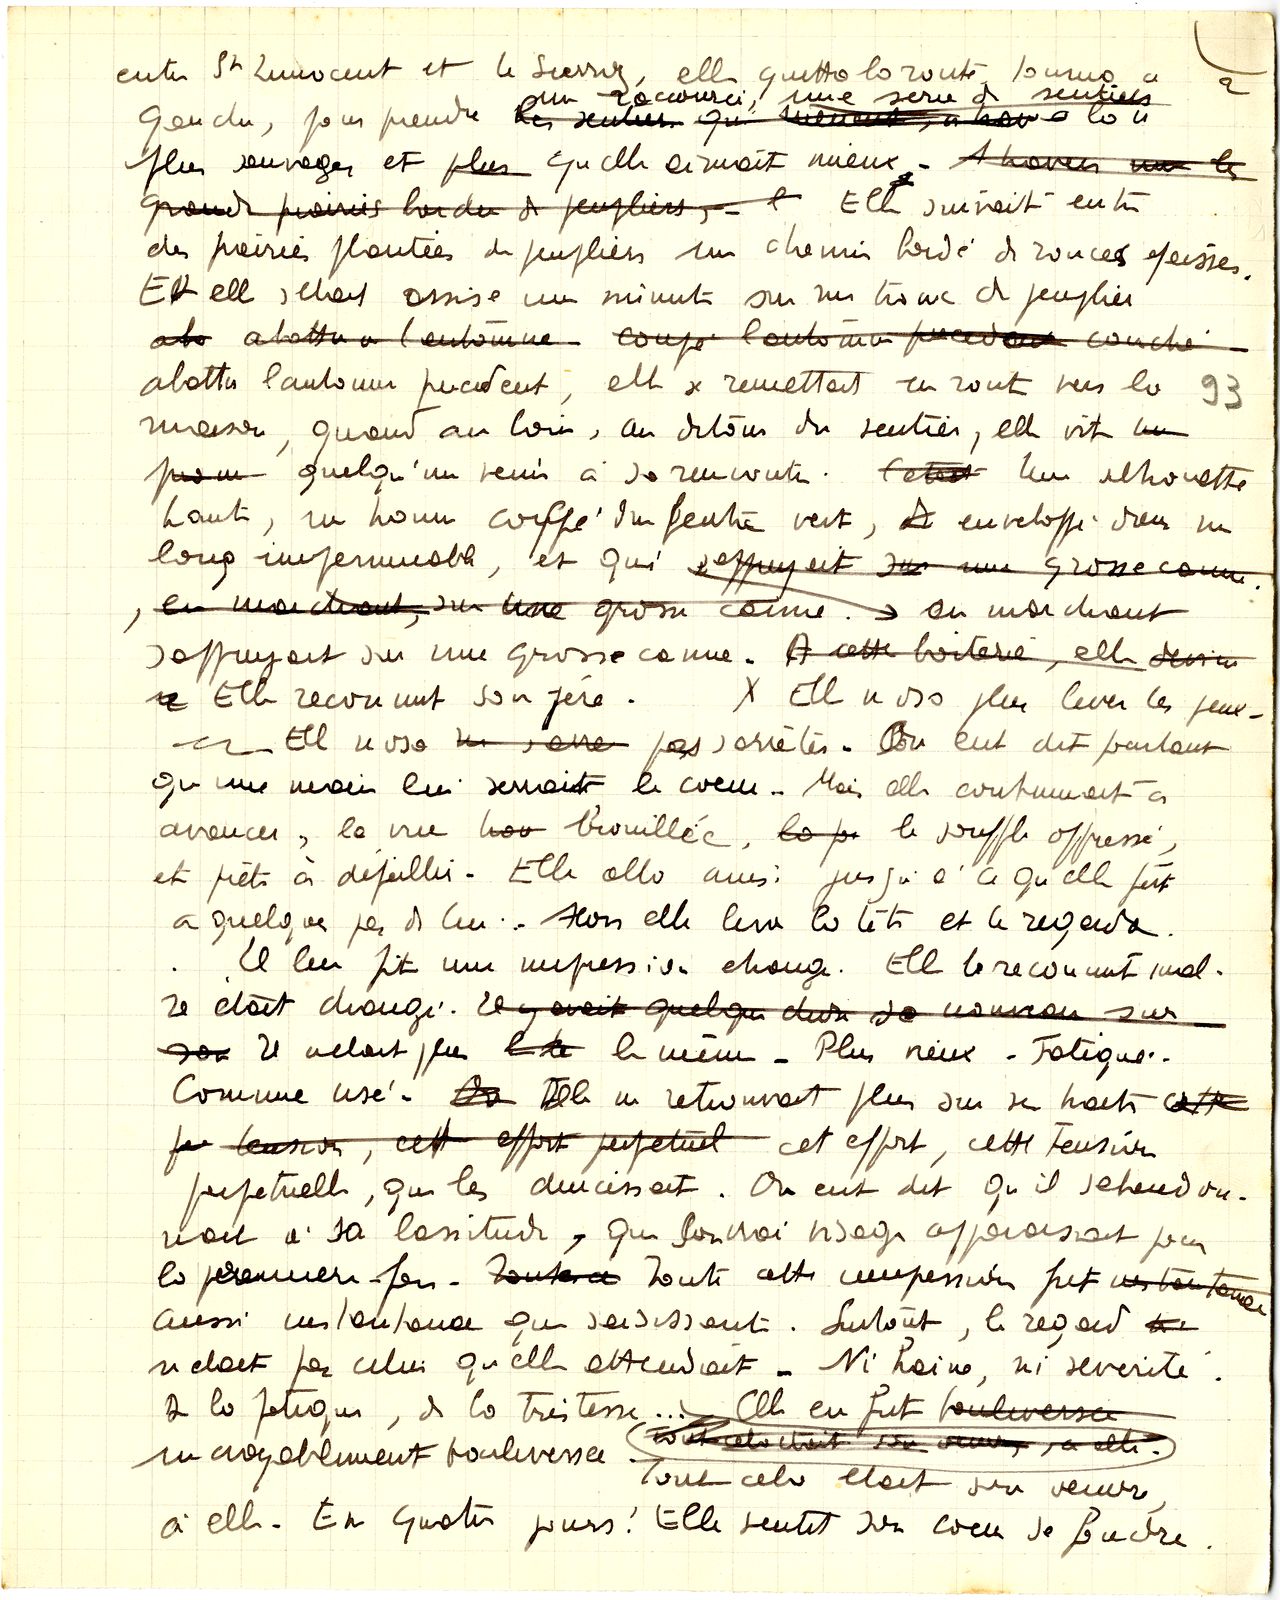 entre St Innocent et le Sierroz, elle quitta la route, tourna à
2
un raccourci, une série de sentiers
gauche, pour prendre les sentiers qui menent, à trave
plus sauvages et plus qu'elle aimait mieux. A travers une les
grande prairies bordées de peupliers, - Elle suivait entre
des prairies plantées de peupliers un chemin bordé de ronces épaisses.
Et elle s'était assise une minute sur un tronc de peuplier
aba abattu à l'automne coupé l'automne précédent couché
abattu l'automne précédent, elle se remettait en route vers la
93
maison, quand au loin, au détour du sentier, elle vit un
quelqu'un venir à sa rencontre. C'était Une silhouette
haute, un homme coiffé d'un feutre vert, enveloppé dans un
long imperméable, et qui s'appuyait sur une grosse canne.
, en marchant, sur une grosse canne. en marchant
s'appuyait sur une grosse canne. A cette boiterie, elle devina
Elle reconnut son père. X Elle n'osa plus lever les yeux -
Elle n'osa pas s'arrêter. On eut dit pourtant
qu'une main lui serrait le coeur. Mais elle continuait à
avancer, la vue brouillée, le souffle oppressé,
et prête à défaillir. Elle alla ainsi jusqu'à ce qu'elle fût
à quelques pas de lui. Alors elle leva la tête et le regarda.
Il lui fit une impression étrange. Elle le reconnut mal.
Il était changé. Il y avait quelque chose de nouveau sur
son Il n'était plus le même - Plus vieux - Fatigué.
Comme usé. Elle ne retrouvait plus sur ses traits cette
tension, cet effort perpétuel cet effort, cette tension
perpétuelle, qui les durcissait. On eut dit qu'il s'abandon-
nait à sa lassitude, que son vrai visage apparaissait pour
la première fois. Toute cette impression fut instantanée
aussi instantanée que saisissante. Surtout, le regard
n'était pas celui qu'elle attendait - Ni haine, ni sévérité.
De la fatigue, de la tristesse... Elle en fut bouleversée
incroyablement bouleversée. Tout cela était son oeuvre, à elle.
Tout cela était son oeuvre,
à elle. En quatre jours! Elle sentit son coeur se fendre.